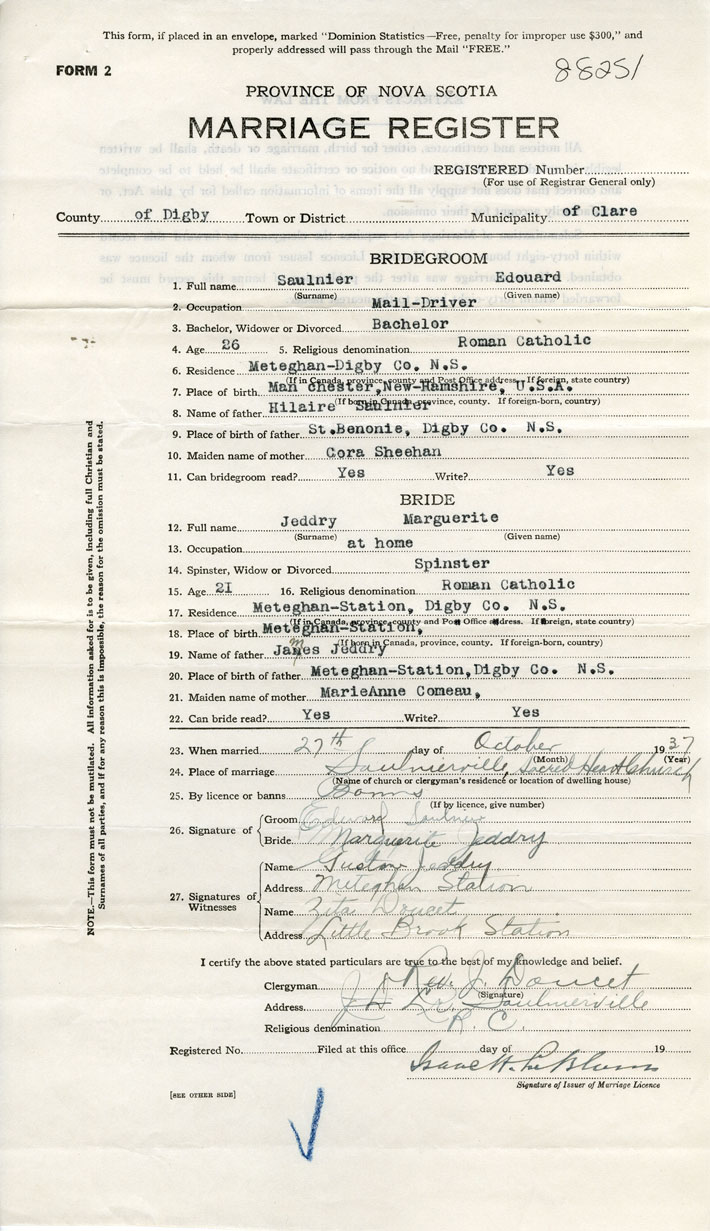 This form, if placed in an envelope, marked "Dominion Statistics—Free, penalty for improper use $300," and
properly addressed will pass through the Mail "FREE."
FORM 2
88251
PROVINCE OF NOVA SCOTIA
MARRIAGE REGISTER
REGISTERED Number
(For use of Registrar General only)
County of Digby Town or District Municipality of Clare
BRIDEGROOM
1. Full name Saulnier Edouard
(Surname) (Given name)
2. Occupation Mail-Driver
3. Bachelor, Widower or Divorced Bachelor
4. Age 26 5. Religious denomination Roman Catholic
6. Residence Meteghan-Digby Co. N.S.
(If in Canada, province, county and Post Office address. If foreign, state country)
7. Place of birth Man chester, New-Hamshire, U.S.A.
(If born in Canada, province, county. If foreign-born, country)
8. Name of father Hilaire Saulnier
9. Place of birth of father St.Benonie, Digby Co. N.S.
10. Maiden name of mother Cora Sheehan
11. Can bridegroom read? Yes Write? Yes
BRIDE
12. Full name Jeddry Marguerite
(Surname) (Given name)
13. Occupation at home
14. Spinster, Widow or Divorced Spinster
15. Age 21 16. Religious denomination Roman Catholic
17. Residence Meteghan-Station, Digby Co. N.S.
(If in Canada, province, county and Post Office address. If foreign, state country)
18. Place of birth Meteghan-Station,
(If born in Canada, province, county. If foreign-born, country)
19. Name of father James Jeddry
20. Place of birth of father Meteghan-Station, Digby Co. N.S.
21. Maiden name of mother MarieAnne Comeau,
22. Can bride read? Yes Write? Yes
23. When married 27th day of October 1937
(Month) (Year)
24. Place of marriage Saulnierville, Sacred Heart Church
(Name of church or clergyman's residence or location of dwelling house)
25. By licence or banns Banns
(If by licence, give number)
26. Signature of
Groom Edward Saulnier
Bride Marguerite Jeddry
27. Signatures of Witnesses
Name Gustave Jeddry
Address Meteghan Station
Name Zita Doucet
Address Little Brook Station
I certify the above stated particulars are true to the best of my knowledge and belief.
Clergyman Rev. J. Doucet
(Signature)
Address Saulnierville
Religious denomination R. C.
Registered No. Filed at this office day of 19
Isaac H. LeBlanc
Signature of Issuer of Marriage Licence
[SEE OTHER SIDE]
NOTE.—This form must not be mutilated. All information asked for is to be given, including full Christian and
Surnames of all parties, and if for any reason this is impossible, the reason for the omission must be stated.